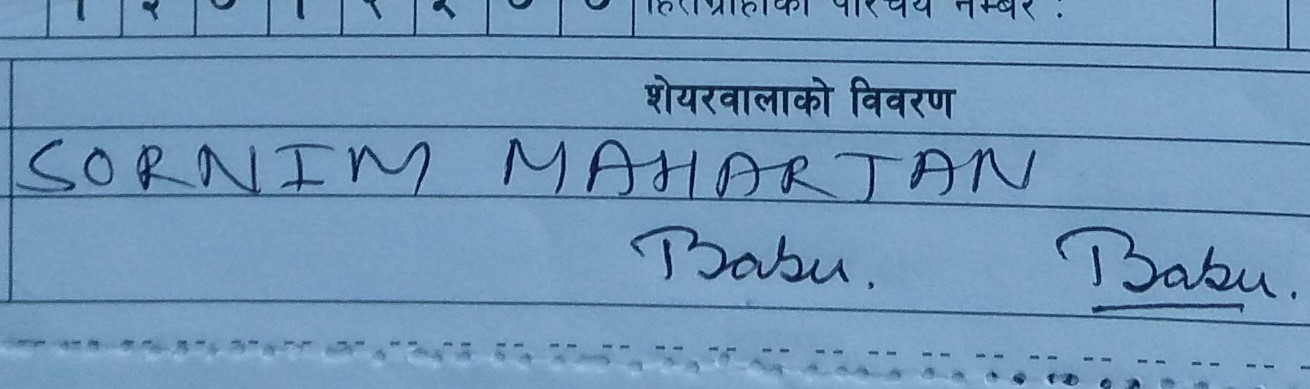 हितग्राहीको परिचय नम्बर :
शेयरवालाको विवरण
SORNIM MAHARJAN
Babu. Babu.